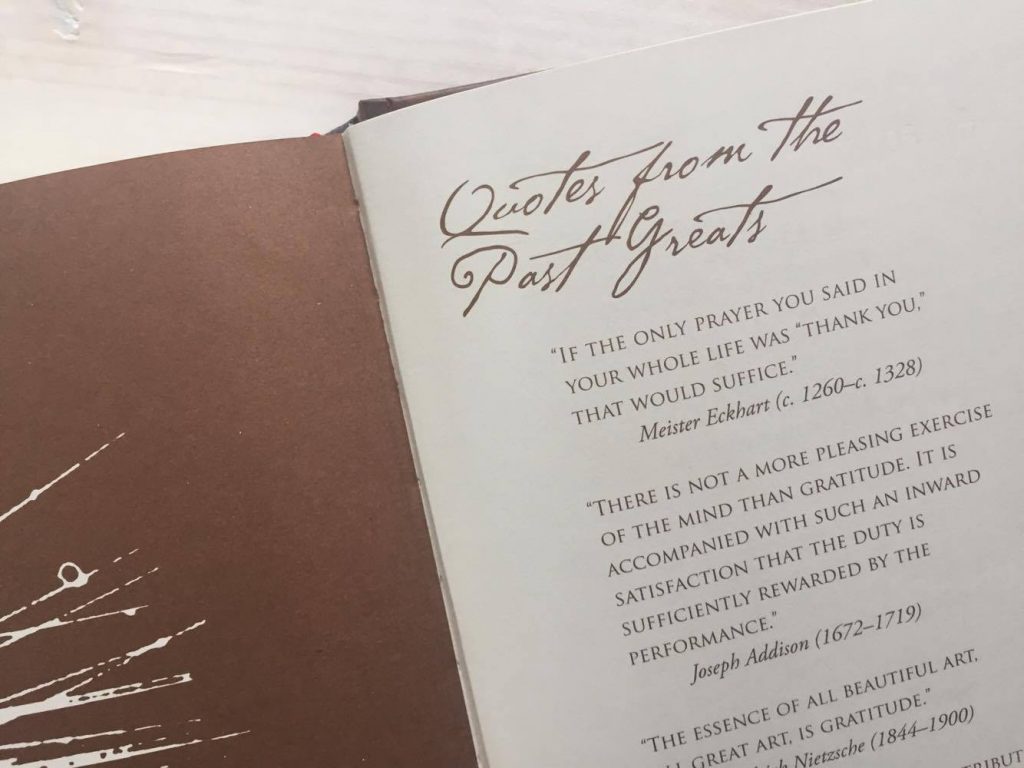 Quotes from the
Past Greats
“IF THE ONLY PRAYER YOU SAID IN
YOUR WHOLE LIFE WAS “THANK YOU,”
THAT WOULD SUFFICE.”
Meister Eckhart (c. 1260–c. 1328)
“THERE IS NOT A MORE PLEASING EXERCISE
OF THE MIND THAN GRATITUDE. IT IS
ACCOMPANIED WITH SUCH AN INWARD
SATISFACTION THAT THE DUTY IS
SUFFICIENTLY REWARDED BY THE
PERFORMANCE.”
Joseph Addison (1672–1719)
“THE ESSENCE OF ALL BEAUTIFUL ART,
GREAT ART, IS GRATITUDE.”
Nietzsche (1844–1900)